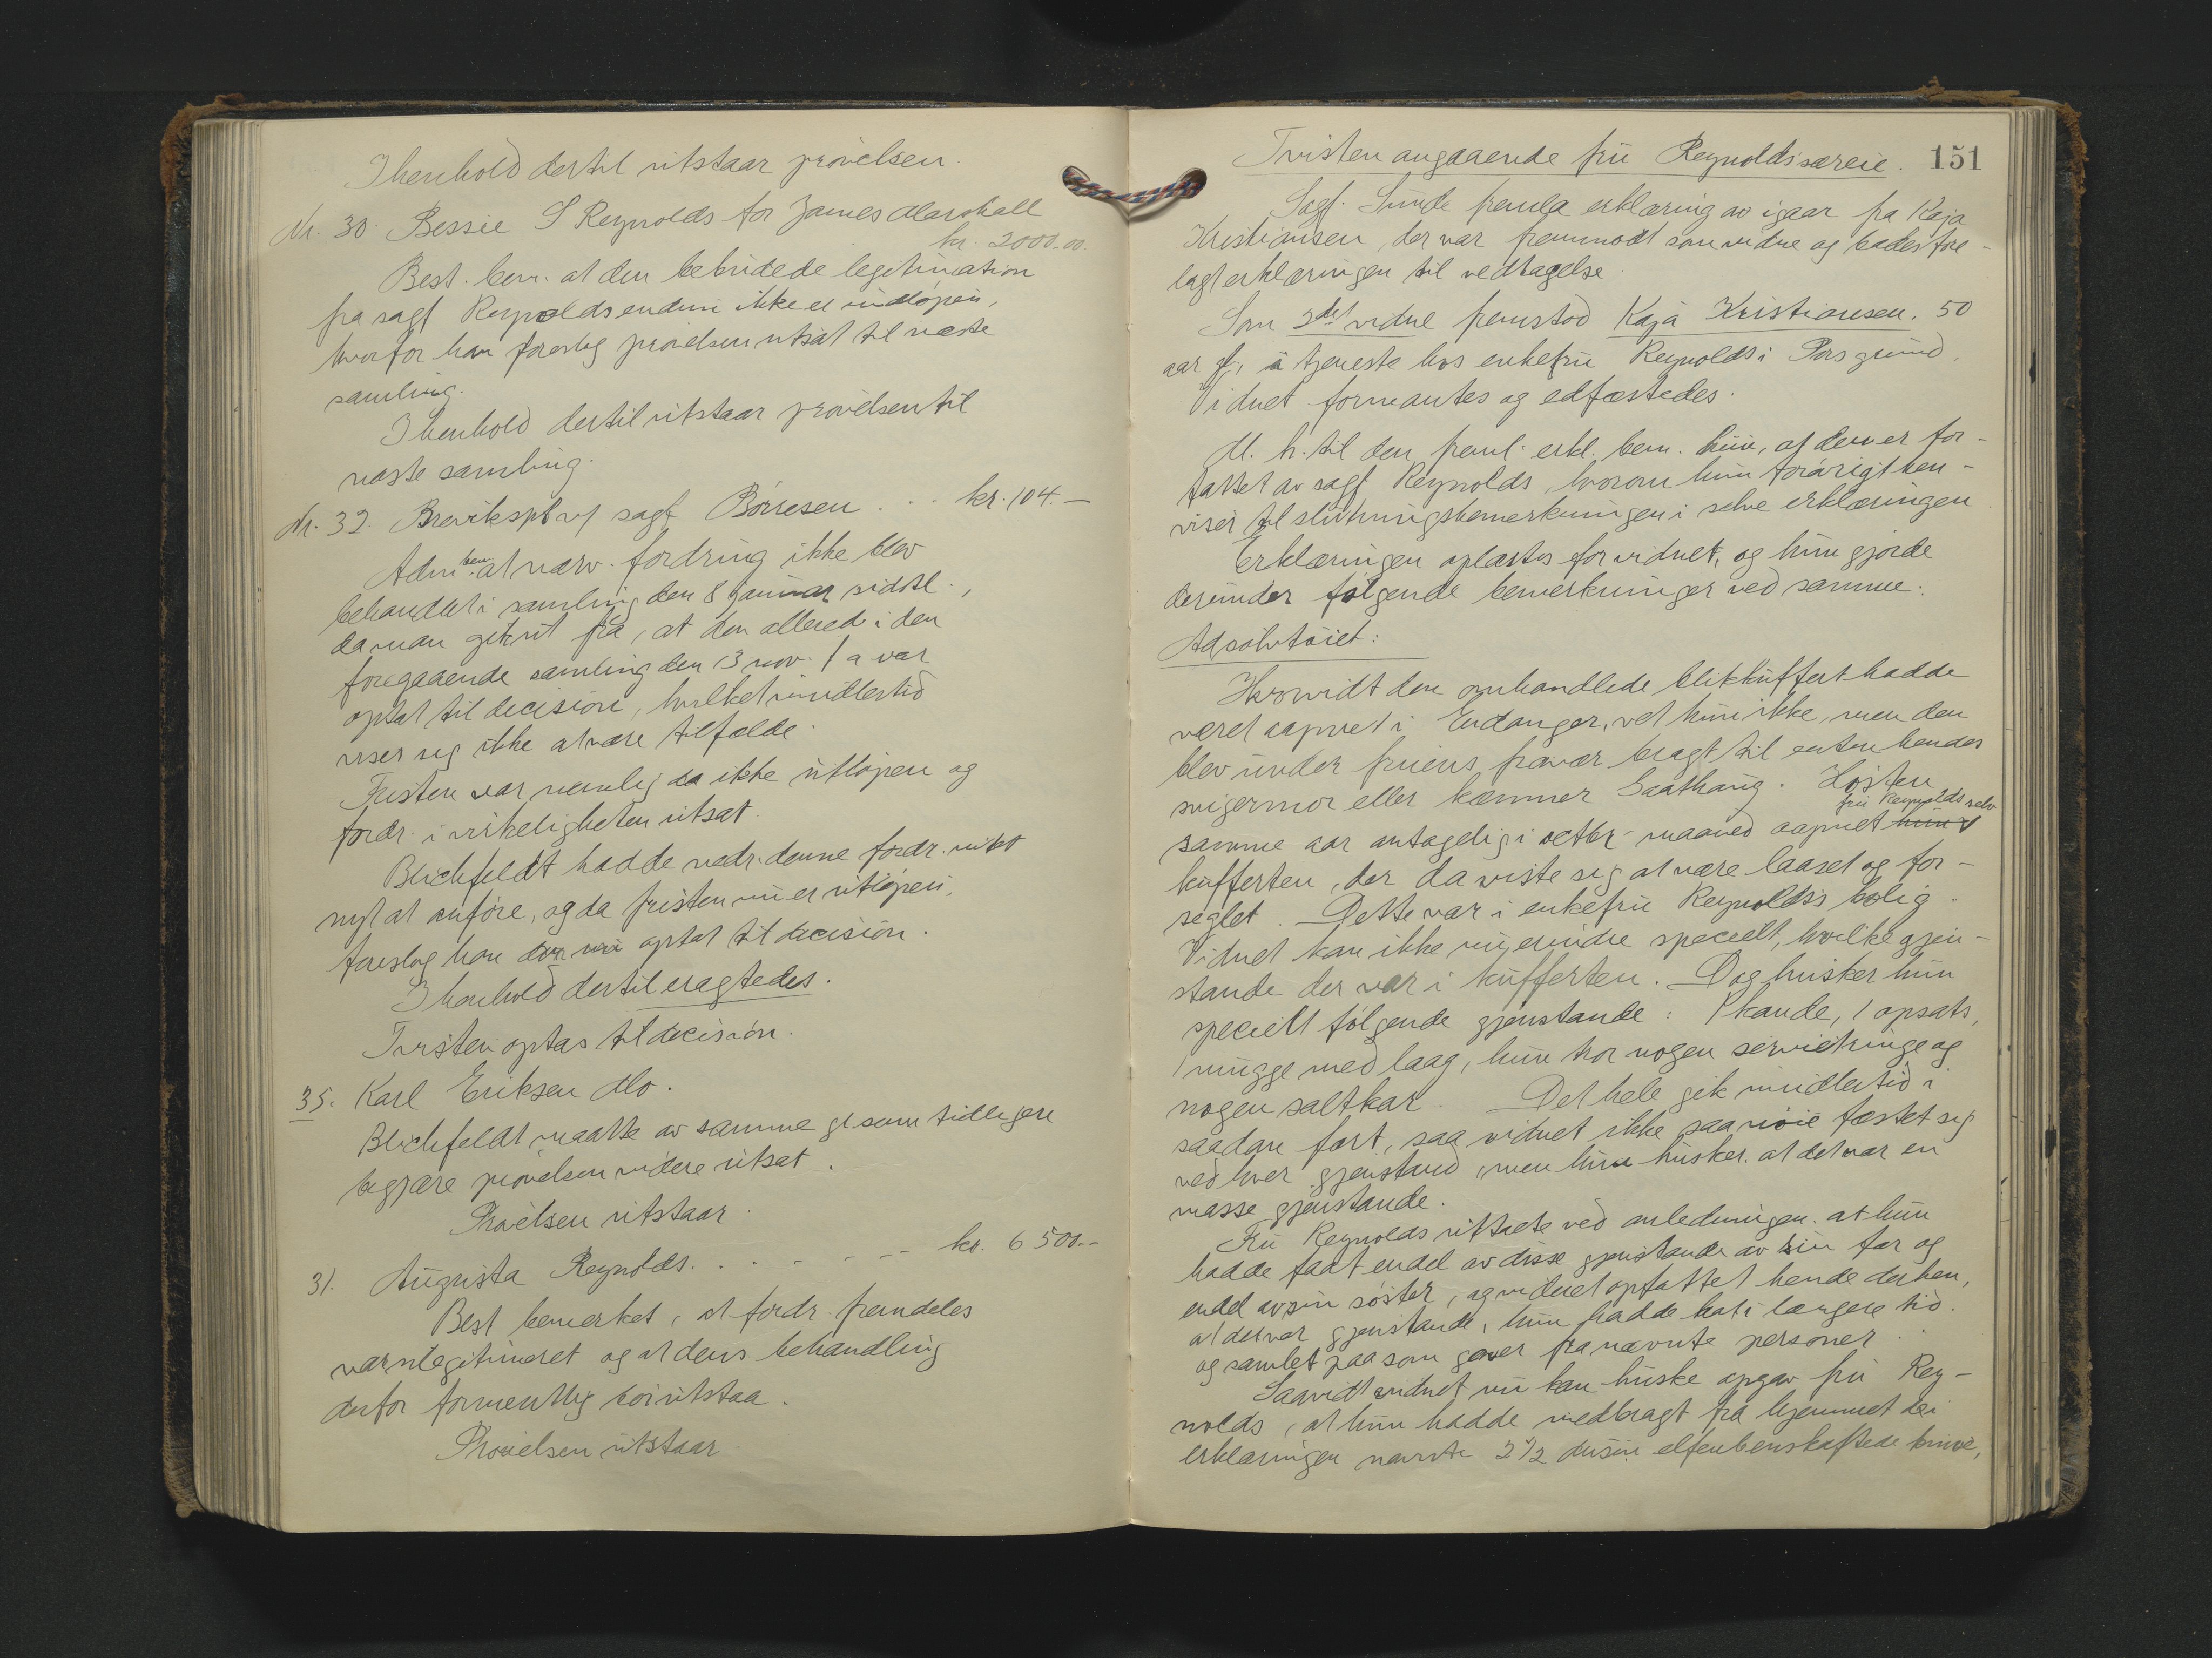 I henhold dertil utstaar prøvelsen.
Nr. 30. Bessie S Reynolds for James Marshall
kr. 2000.00.
Best. bem. at den bebudede legitimation
fra sagf Reynolds endnu ikke er indløpen,
hvorfor han foreslog prøvelsen utsat til næste
samling.
I henhold dertil utstaar prøvelsen til
næste samling.
Nr. 32. Breviksp v/ sagf Børresen . . . kr. 104.—
Adm bem. at nærv. fordring ikke blev
behandlet i samling den 8 januar sidstl.,
da man gik ut fra, at den allerede i den
foregaaende samling den 13 nov. f a var
optat til decision, hvilket imidlertid
viser sig ikke at være tilfælde.
Fristen var nemlig da ikke utløpen og
fordr. i virkeligheten utsat.
Blichfeldt hadde vedr. denne fordr. intet
nyt at anføre, og da fristen nu er utløpen,
foreslog han den nu optat til decision.
I henhold dertil eragtedes.
Tvisten optas til decision.
35. Karl Eriksen Mo.
Blichfeldt maatte av samme gr som tidligere
begjære prøvelsen videre utsat.
Prøvelsen utstaar.
31. Augusta Reynolds. . . . . . . kr. 6500.—
Best bemerket, at fordr. fremdeles
var ulegitimeret og at dens behandling
derfor formentlig bør utstaa.
Prøvelsen utstaar.
Tvisten angaaende fru Reynolds særeie. 151
Sagf. Sunde freml a erklæring av igaar fra Kaja
Kristiansen, der var fremmødt som vidne og bades fore-
lagt erklæringen til vedtagelse.
Som 3det vidne fremstod Kaja Kristiansen. 50
aar g, i tjeneste hos enkefru Reynolds i Porsgrund.
Vidnet formantes og edfæstedes.
M. h. til den freml. erkl. bem. hun, at den er for-
fattet av sagf Reynolds, hvorom hun forøvrigt hen-
viser til slutningsbemerkningen i selve erklæringen
Erklæringen oplæstes for vidnet, og hun gjorde
derunder følgende bemerkninger ved samme:
Ad sølvtøiet:
Hvorvidt den omhandlede blikkuffert hadde
været aapnet i Endanger, vet hun ikke, men den
blev under fruens fravær bragt til enten hendes
svigermor eller kæmner Saathaug. Høsten
samme aar antagelig i octbr. maaned aapnet hun fru Reynolds selv
kufferten, der da viste sig at være laaset og for-
seglet. Dette var i enkefru Reynolds's bolig.
Vidnet kan ikke nu erindre specielt, hvilke gjen-
stande der var i kufferten. Dog husker hun
specielt følgende gjenstande: 1 kande, 1 opsats,
1 mugge med laag, hun tror nogen servietringe og
nogen saltkar. Det hele gik imidlertid i
saadan fart, saa vidnet ikke saa nøie fæstet sig
ved hver gjenstand, men hun husker. at det var en
masse gjenstande.
Fru Reynolds uttalte ved anledningen. at hun
hadde faat endel av disse gjenstande av sin far og
endel av sin søster, og vidnet opfattet hende derhen,
at det var gjenstande, hun hadde hat i længere tid.
og samlet paa som gaver fra nævnte personer.
Saavidt vidnet nu kan huske opgav fru Rey-
nolds, at hun hadde medbragt fra hjemmet de i
erklæringen nævnte 2 1/2 dusin elfenbenskaftede knive,